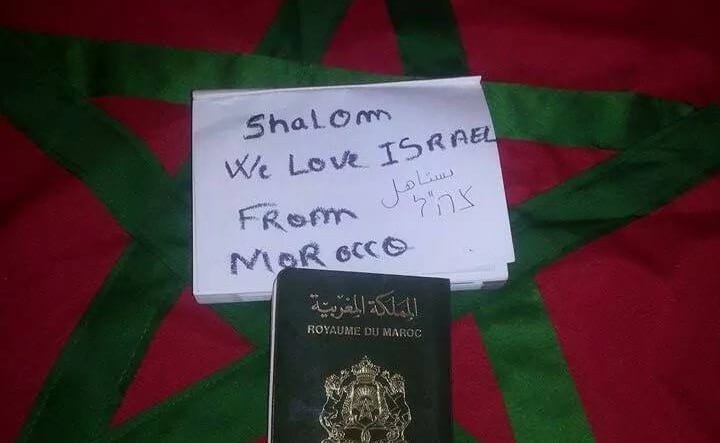 Shalom
We Love ISRAEL
يستاهل
צה"ל
From
MOROCCO
المملكة المغربية
ROYAUME DU MAROC